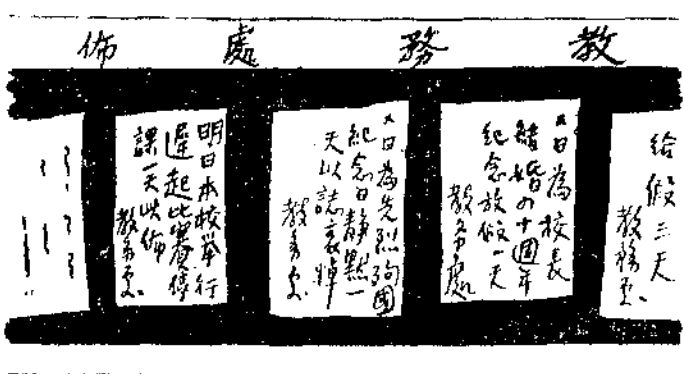 教務處佈
給假三天
教務处
×日為校長
結婚四十週年
紀念放假一天
教务處
×日為先烈殉國
紀念日靜默一
天以誌哀悼
教务处
明日本校举行
遲起比賽停
課一天此佈
教务处